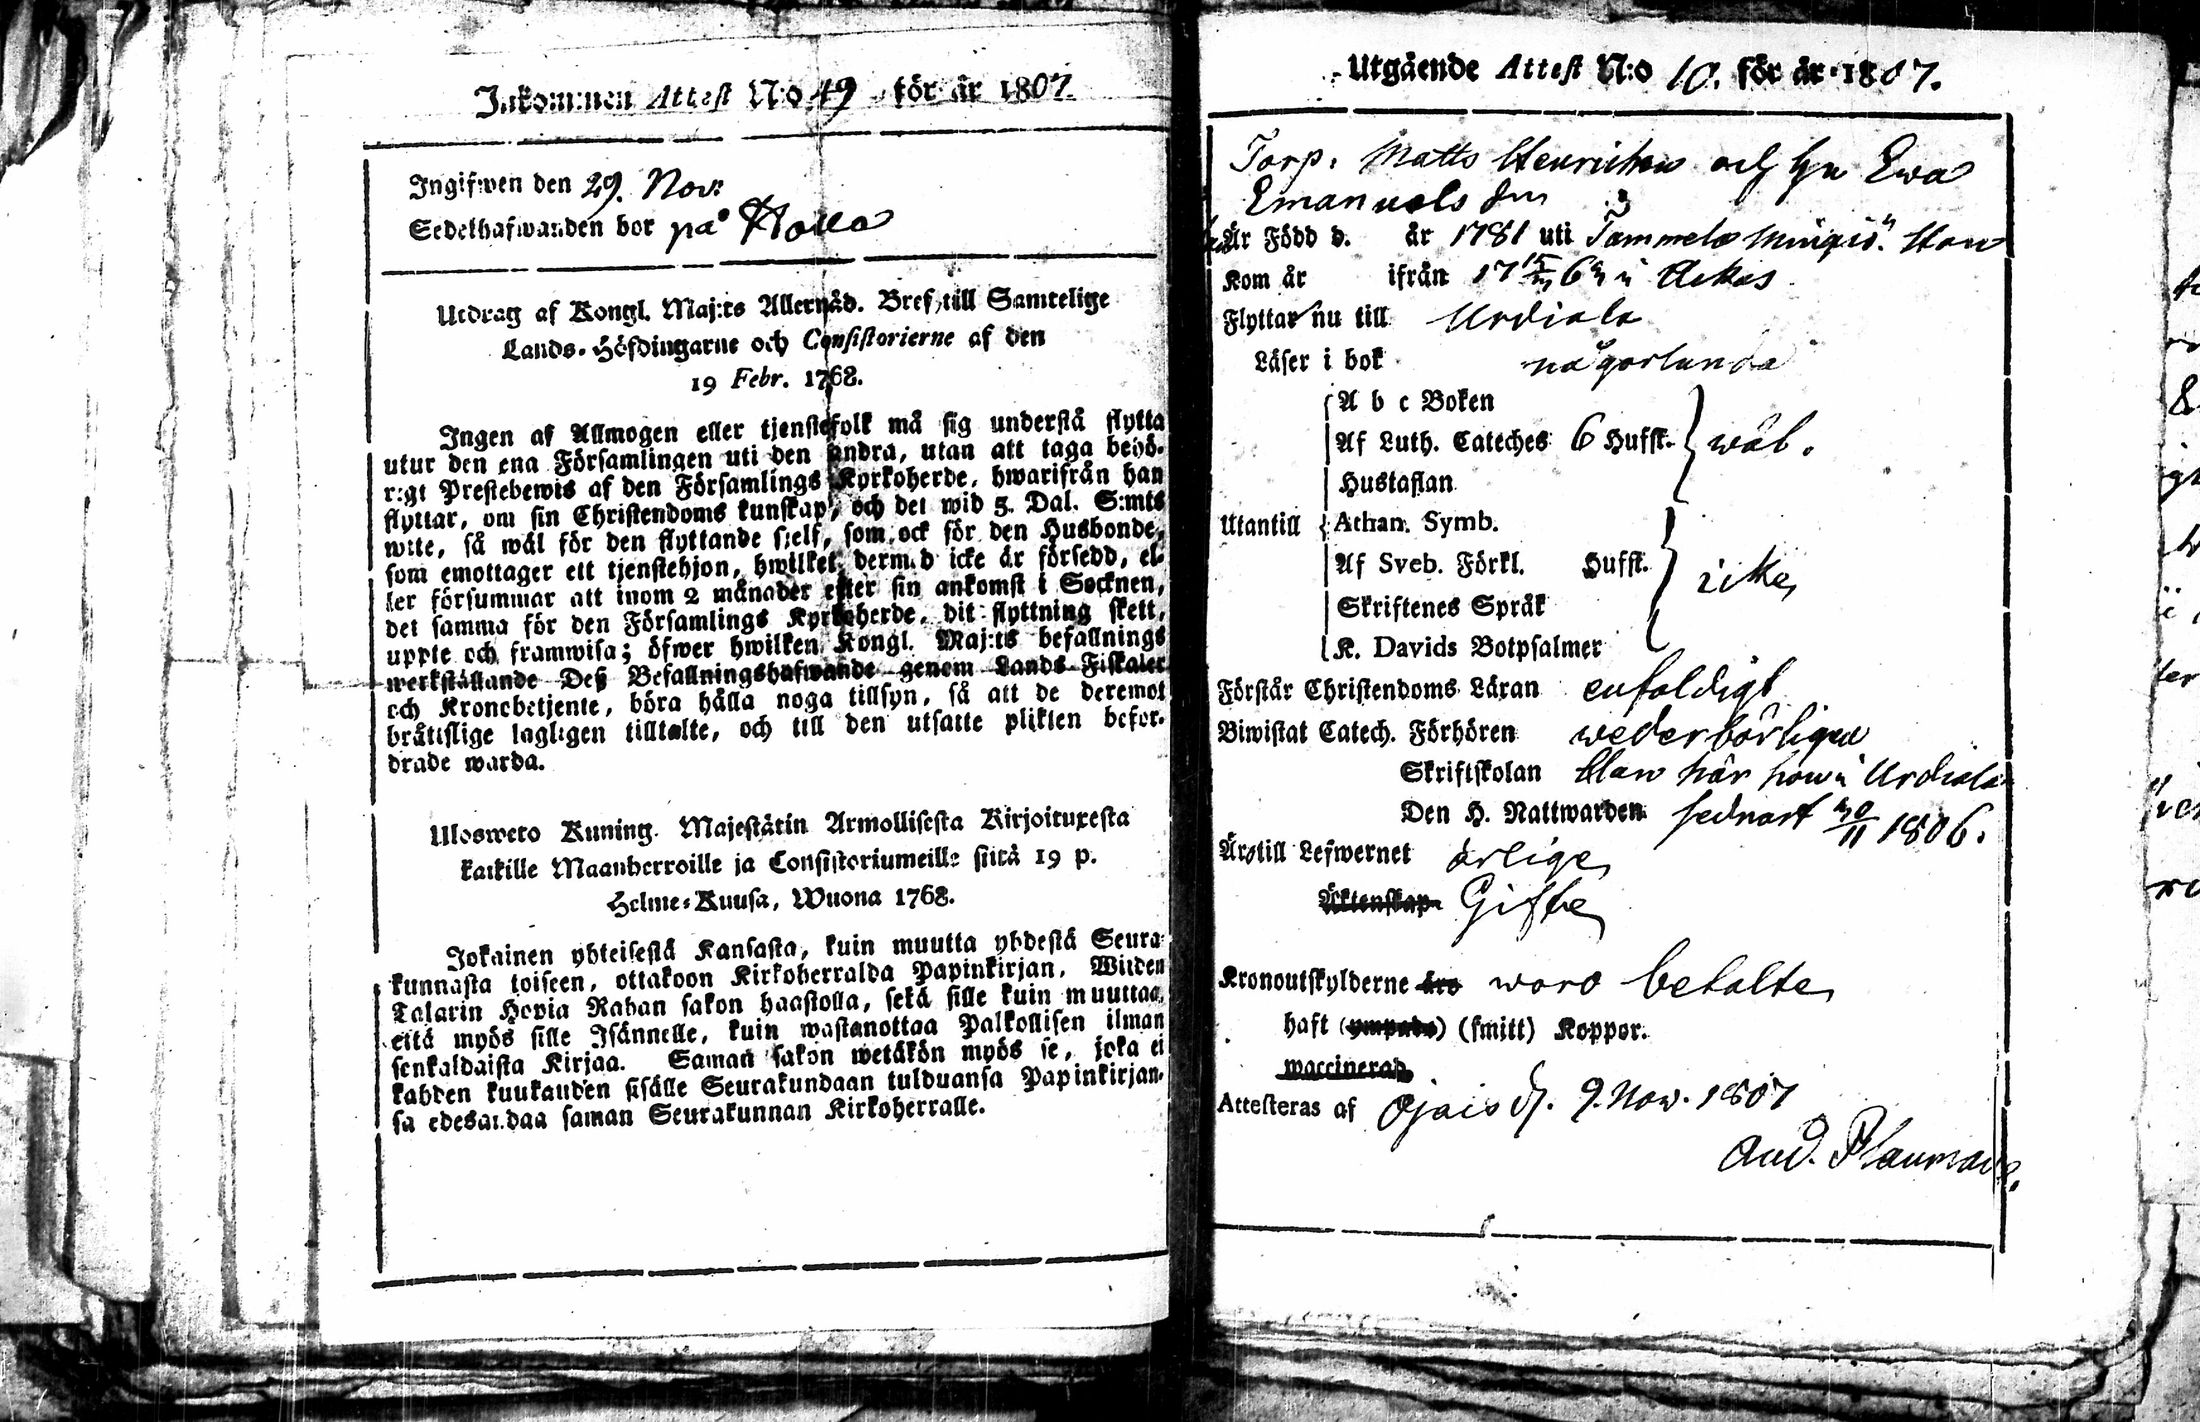 Inkommen Attest N:o 49 för år 1807.
Ingifwen den 29. Nov:
Sedelhafwanden bor på
Utdrag af Kongl. Maj:ts Allernåd. Bref till Samtelige
Lands-Höfdingarne och Consistorierne af den
19 Febr. 1768.
Ingen af Allmogen eller tjenstefolk må sig understå flytta
utur den ena Församlingen uti den andra, utan att taga behö-
rigt Prestebewis af den Församlings Kyrkoherde, hwarifrån han
flyttar, om sin Christendoms kunskap, och det wid 5. Dal. S:mts
wite, så wäl för den flyttande sielf, som ock för den Husbonde,
som emottager ett tjenstehjon, hwilket dermed icke är försedd, el-
ler försummar att inom 2 månader efter sin ankomst i Socknen,
det samma för den Församlings Kyrkoherde, dit flyttning skett,
uppte och framwisa; öfwer hwilken Kongl. Maj:ts befallnings
werkställande Deß Befallningshafwande genom Lands-Fiskaler
och Kronobetjente, böra hålla noga tillsyn, så att de deremot
bråttslige lagligen tilltalte, och till den utsatte plikten befor-
drade warda.
Ulosweto Kuning. Majestätin Armollisesta Kirjoituxesta
kaikille Maanherroille ja Consistoriumeille siitä 19 p.
Helme-Kuusa, Wuona 1768.
Jokainen yhteisestä Kansasta, kuin muutta yhdestä Seura-
kunnasta toiseen, ottakoon Kirkoherralda Papinkirjan, Wiiden
Talarin Hopia Rahan sakon haastolla, sekä sille kuin muuttaa,
että myös sille Isännelle, kuin wastanottaa Palkollisen ilman
senkaldaista Kirjaa. Saman sakon wetäkön myös se, joka ei
kahden kuukauden sisälle Seurakundaan tulduansa Papinkirjan-
sa edesandaa saman Seurakunnan Kirkoherralle.
Utgående Attest N:o 10. för år 1807.
Torp. Matts Henricson och hu Ewa
Emanuels dr
Är Född d. år 1781 uti Tammela Hon
Kom år ifrån i Ackas
Flyttar nu till Urdiala
Läser i bok någorlunda
A b c Boken
Af Luth. Cateches 6 Hufst. wäl.
Hustaflan
Utantill Athan. Symb.
Af Sveb. Förkl. Hufst. icke
Skriftenes Språk
K. Davids Botpsalmer
Förstår Christendoms Läran enfaldigt
Biwistat Catech. Förhören wederbörligen
Skriftskolan Han här hon i Urdiala
Den H. Nattwarden sednast 30/11 1806.
Är till Lefwernet ärlige
Äktenskap Gifte
Kronoutskylderne äro woro betalte
haft (ympade) (smitt) Koppor.
waccinerad
Attesteras af d. 9. Nov. 1807
And.